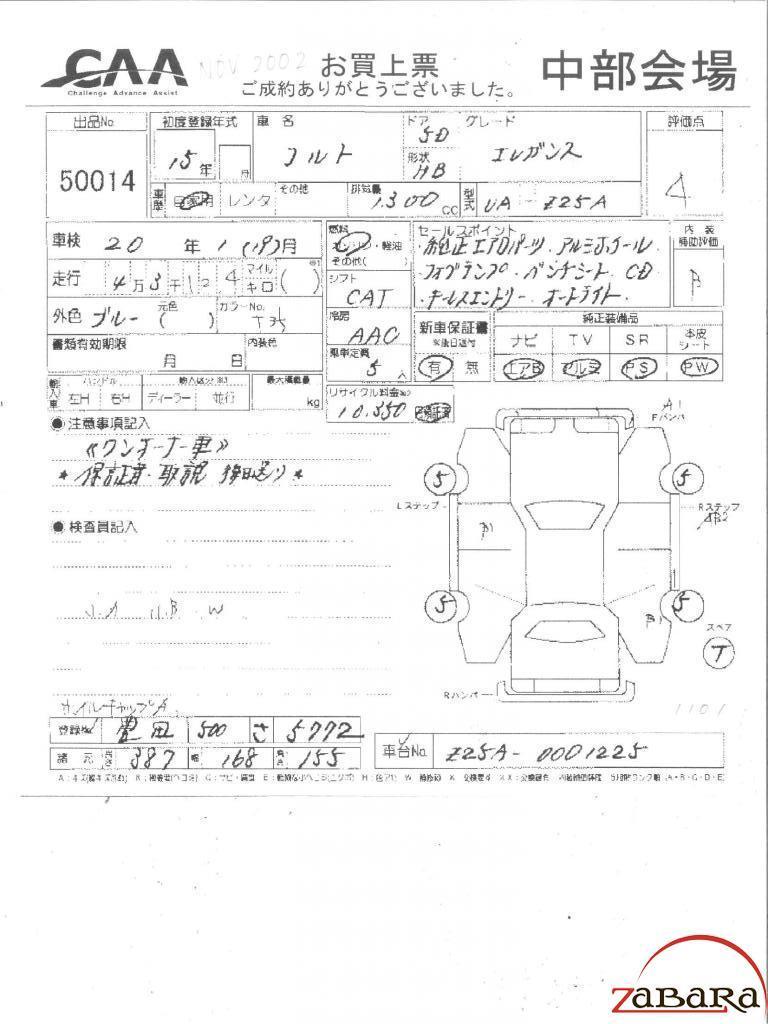 CAA
Challenge Advance Assist
NOV 2002
お買上票
ご成約ありがとうございました。
中部会場
出品No.
50014
初度登録年式
15年
月
車名
コルト
ドア
5D
形状
HB
グレード
エレガンス
評価点
4
車歴
自家用
レンタ
その他
排気量
1,300 cc
型式
UA - Z25A
車検 20年 1(19)月
走行 4万3千124 マイル キロ ( )
外色 ブルー
元色
( )
カラーNo.
T35
書類有効期限
月 日
内装色
燃料
ガソリン・軽油
その他( )
シフト
CAT
冷房
AAC
乗車定員
5人
セールスポイント
純正エアロパーツ. アルミホイール
フォグランプ. ベンチシート. CD
キーレスエントリー. オートライト.
内装
補助評価
B
新車保証書
※後日送付
有 無
純正装備品
ナビ TV SR 本皮シート
エアB アルミ PS PW
輸入車
ハンドル
左H 右H
輸入区分
ディーラー 並行
最大積載量
kg
リサイクル料金
10,350
預託済
●注意事項記入
《ワンオーナー車》
* 保証書・取説 後日送り *
●検査員記入
W
A1
Fバンパ
5
5
Lステップ
Rステップ
B2
B1
B1
5
5
スペア
T
Rバンパ
1101
ホイルキャップA
登録No.
豊田 500 さ 5772
諸元
長さ 387 幅 168 高さ 155
車台No. Z25A - 0001225
ZABARA